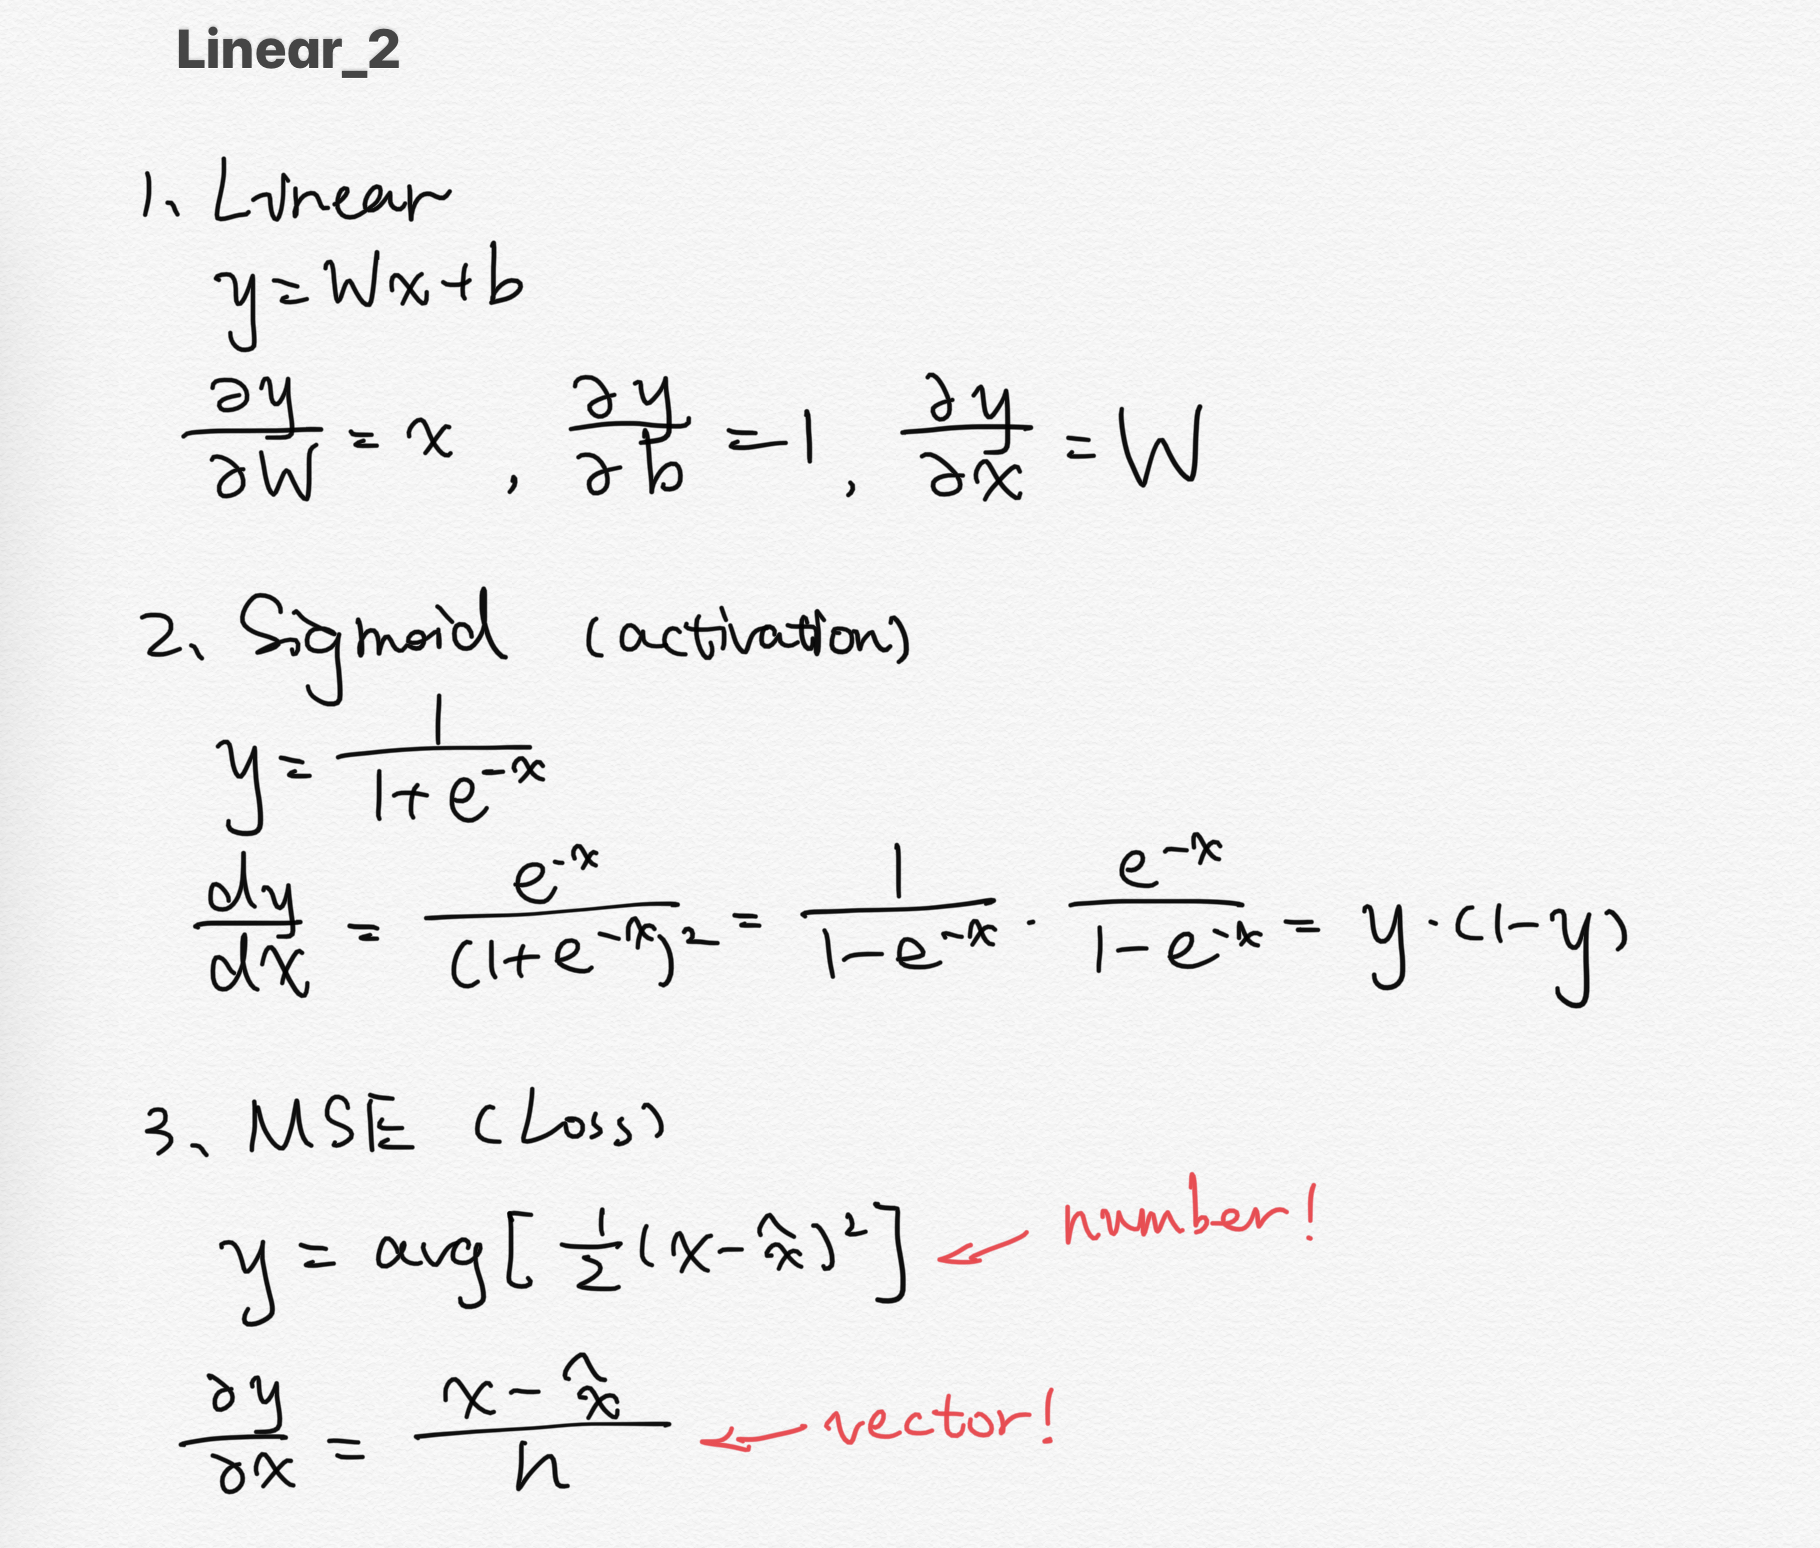 Linear_2
1、Linear
y = Wx + b
∂y/∂W = x , ∂y/∂b = 1 , ∂y/∂x = W
2、Sigmoid (activation)
y = 1/(1+e^-x)
dy/dx = e^-x/(1+e^-x)^2 = 1/(1-e^-x) · e^-x/(1-e^-x) = y·(1-y)
3、MSE (Loss)
y = avg[1/2(x-x̂)^2] ← number!
∂y/∂x = (x-x̂)/n ← vector!